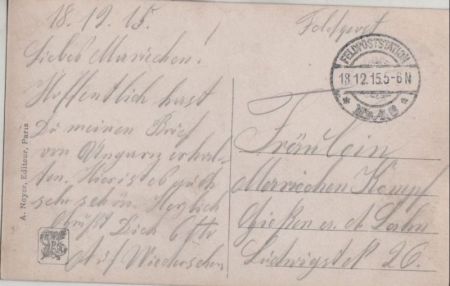 18.12.15.
Liebes Mariechen!
Hoffentlich hast
Du meinen Brief
von Ungarn erhal-
ten. Hier ist es auch
sehr schön. Herzlich
grüßt Dich Otto
Auf Wiedersehen
A. Noyer, Editeur, Paris
Feldpost
FELDPOSTSTATION
18.12.15.5-6N
Fräulein
Mariechen Kempf
Gießen a. d. Lahn
Ludwigstr 26.